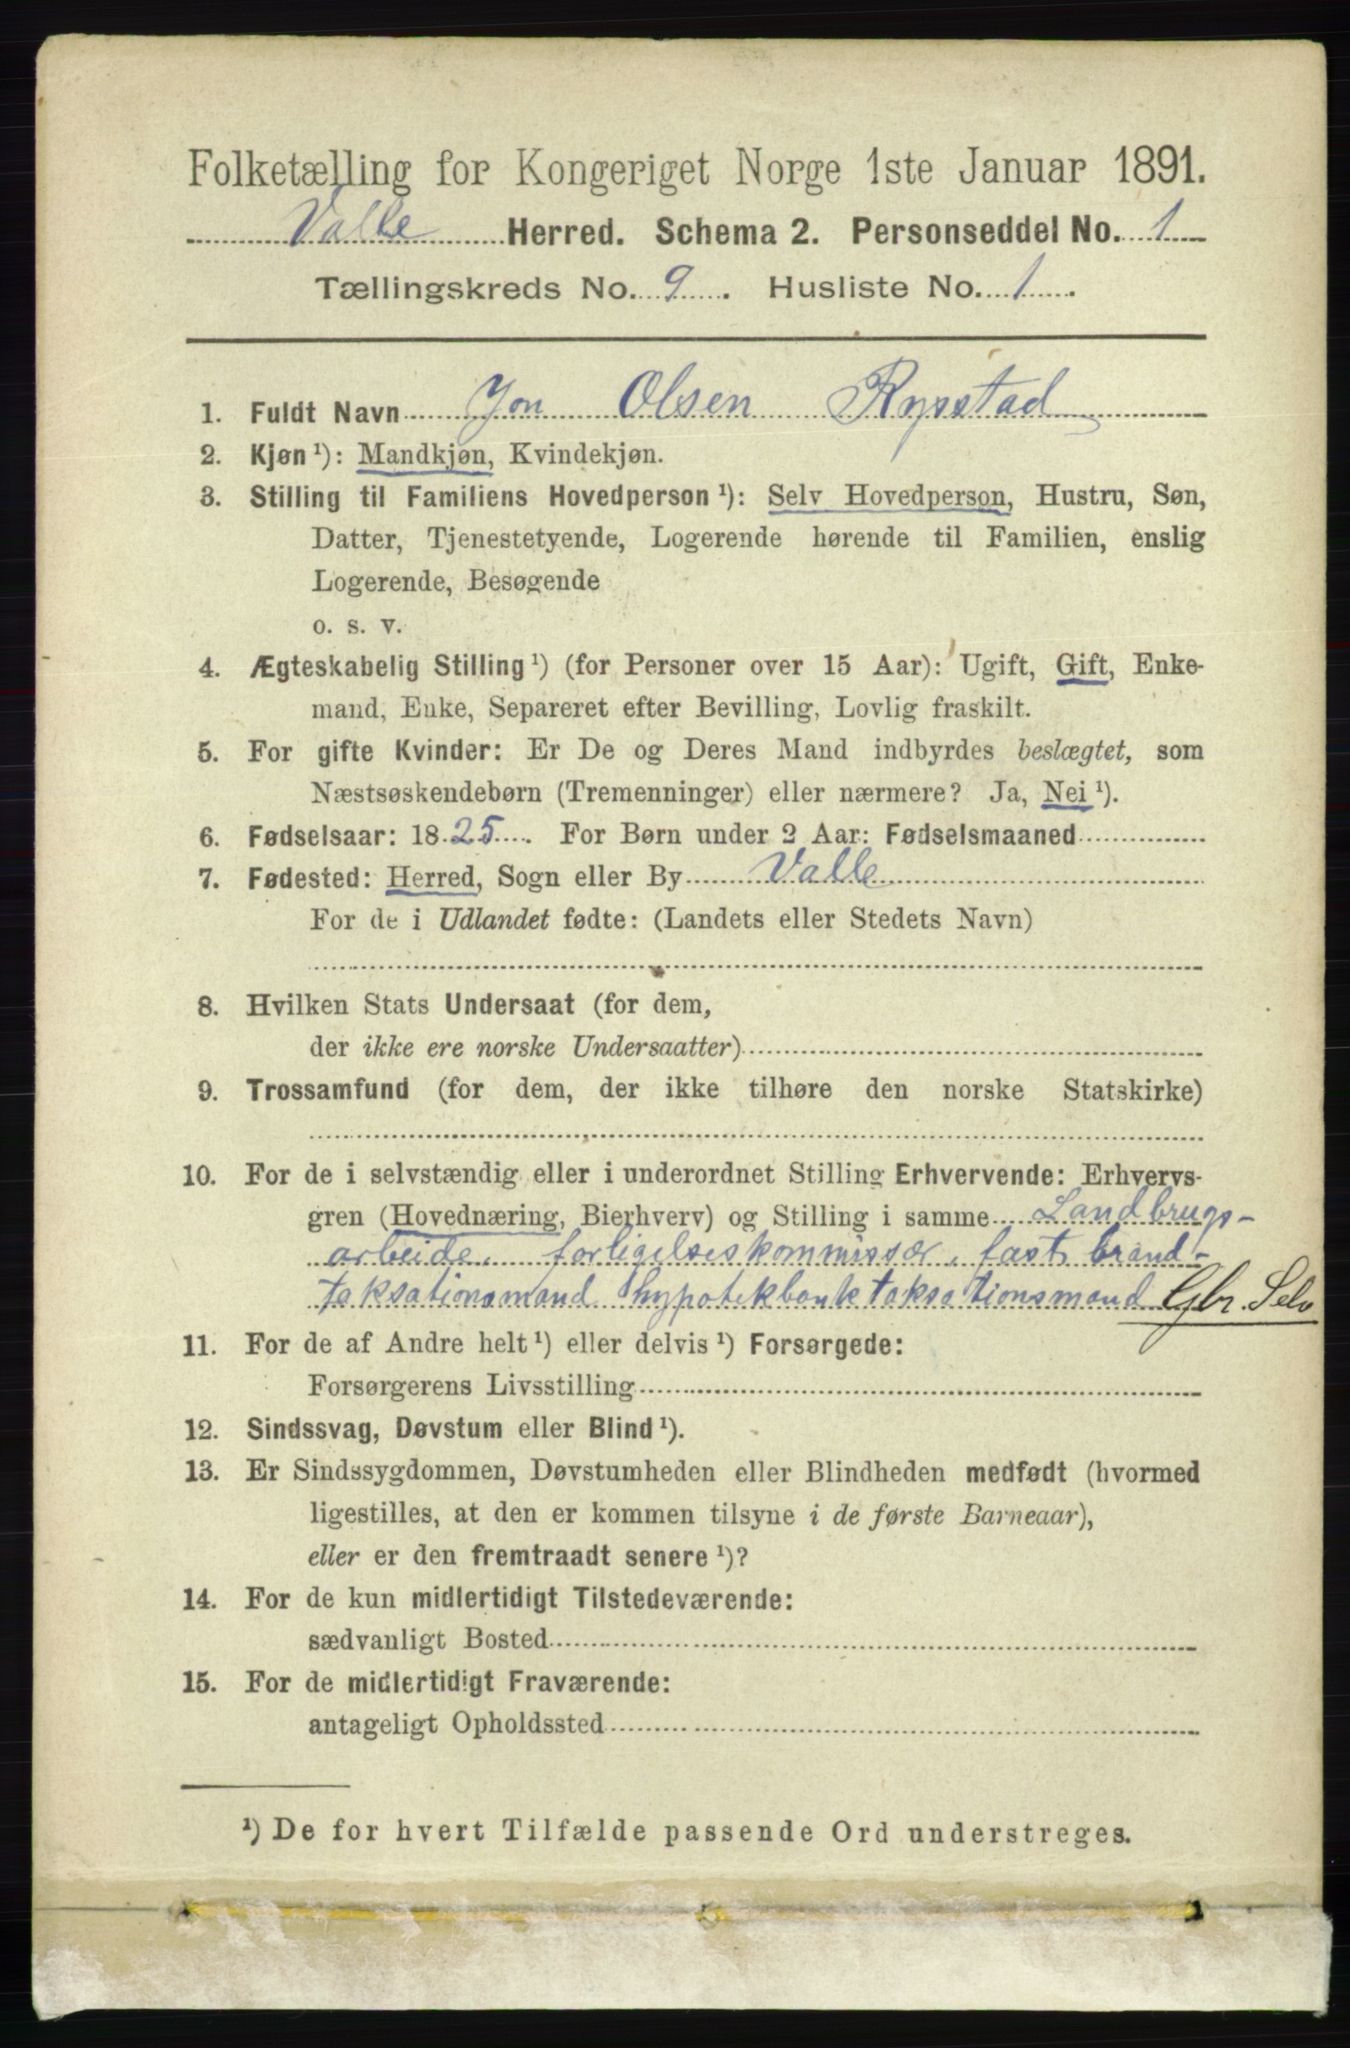 Folketælling for Kongeriget Norge 1ste Januar 1891.
Valle Herred. Schema 2. Personseddel No. 1
Tællingskreds No. 9. Husliste No. 1.
1. Fuldt Navn Jon Olsen Rysstad
2. Kjøn ¹): Mandkjøn, Kvindekjøn.
3. Stilling til Familiens Hovedperson ¹): Selv Hovedperson, Hustru, Søn,
Datter, Tjenestetyende, Logerende hørende til Familien, enslig
Logerende, Besøgende
o. s. v.
4. Ægteskabelig Stilling ¹) (for Personer over 15 Aar): Ugift, Gift, Enke-
mand, Enke, Separeret efter Bevilling, Lovlig fraskilt.
5. For gifte Kvinder: Er De og Deres Mand indbyrdes beslægtet, som
Næstsøskendebørn (Tremenninger) eller nærmere? Ja, Nei ¹).
6. Fødselsaar: 1825. For Børn under 2 Aar: Fødselsmaaned
7. Fødested: Herred, Sogn eller By Valle
For de i Udlandet fødte: (Landets eller Stedets Navn)
8. Hvilken Stats Undersaat (for dem,
der ikke ere norske Undersaatter)
9. Trossamfund (for dem, der ikke tilhøre den norske Statskirke)
10. For de i selvstændig eller i underordnet Stilling Erhvervende: Erhvervs-
gren (Hovednæring, Bierhverv) og Stilling i samme Landbrugs-
arbeide, forligelseskommissær, fast brand-
taksationsmand hypotekbanktaksationsmand Gbr. Selv
11. For de af Andre helt ¹) eller delvis ¹) Forsørgede:
Forsørgerens Livsstilling
12. Sindssvag, Døvstum eller Blind ¹).
13. Er Sindssygdommen, Døvstumheden eller Blindheden medfødt (hvormed
ligestilles, at den er kommen tilsyne i de første Barneaar),
eller er den fremtraadt senere ¹)?
14. For de kun midlertidigt Tilstedeværende:
sædvanligt Bosted
15. For de midlertidigt Fraværende:
antageligt Opholdssted
¹) De for hvert Tilfælde passende Ord understreges.